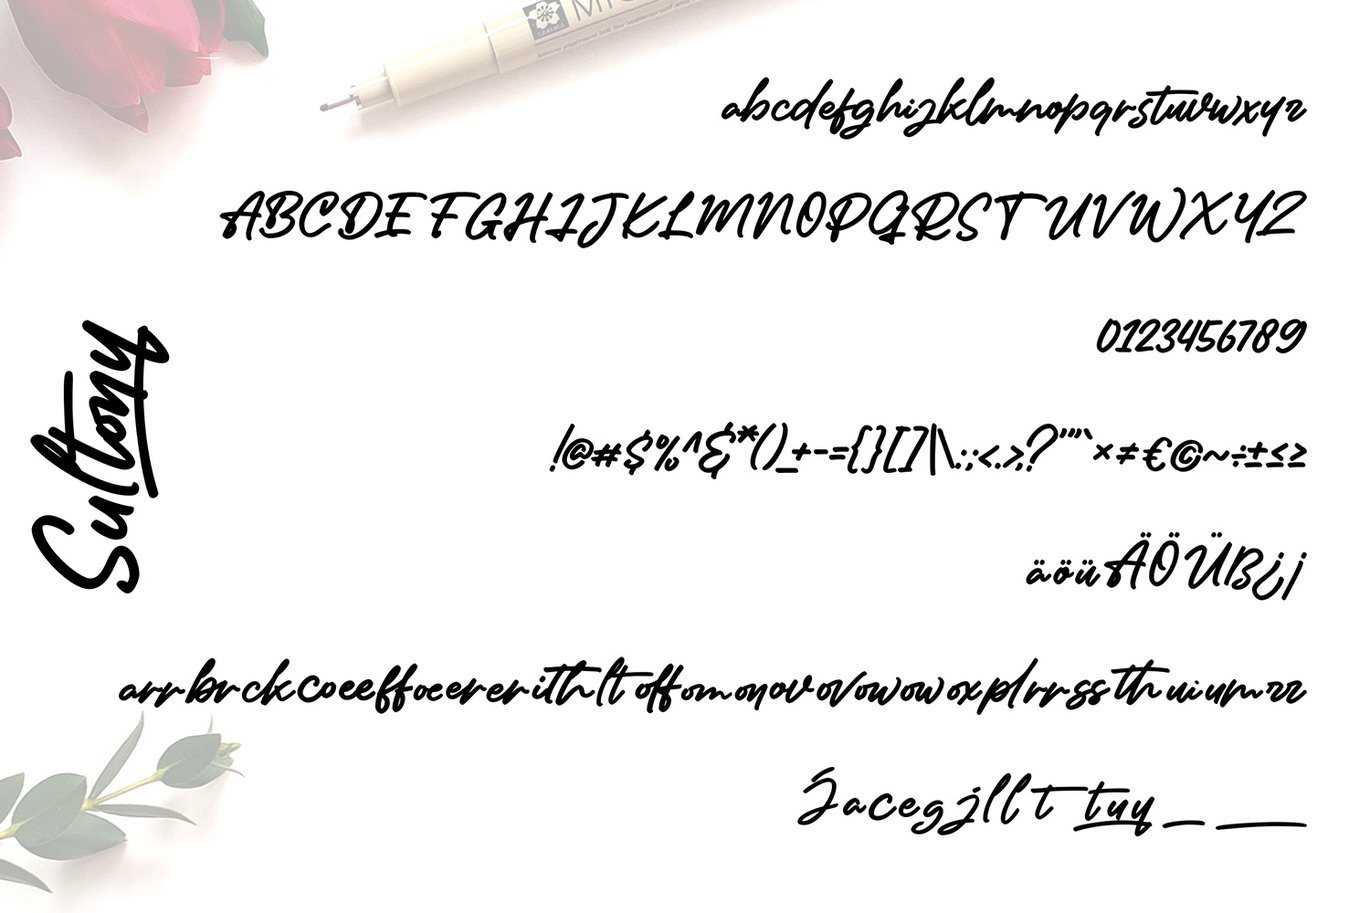 MIC
abcdefghijklmnopqrstuvwxyz
ABCDEFGHIJKLMNOPQRSTUVWXYZ
0123456789
Sultony
!@#$%^&*()_+-={}[]|\:;<.>,?'"‘`×≠€©~÷±≤≥
äöüÄÖÜß¿¡
arrbrckcoeeffoeererithltoffomonovovowowoxplrrssthuiumzz
Jacegjlltt tuy _ __